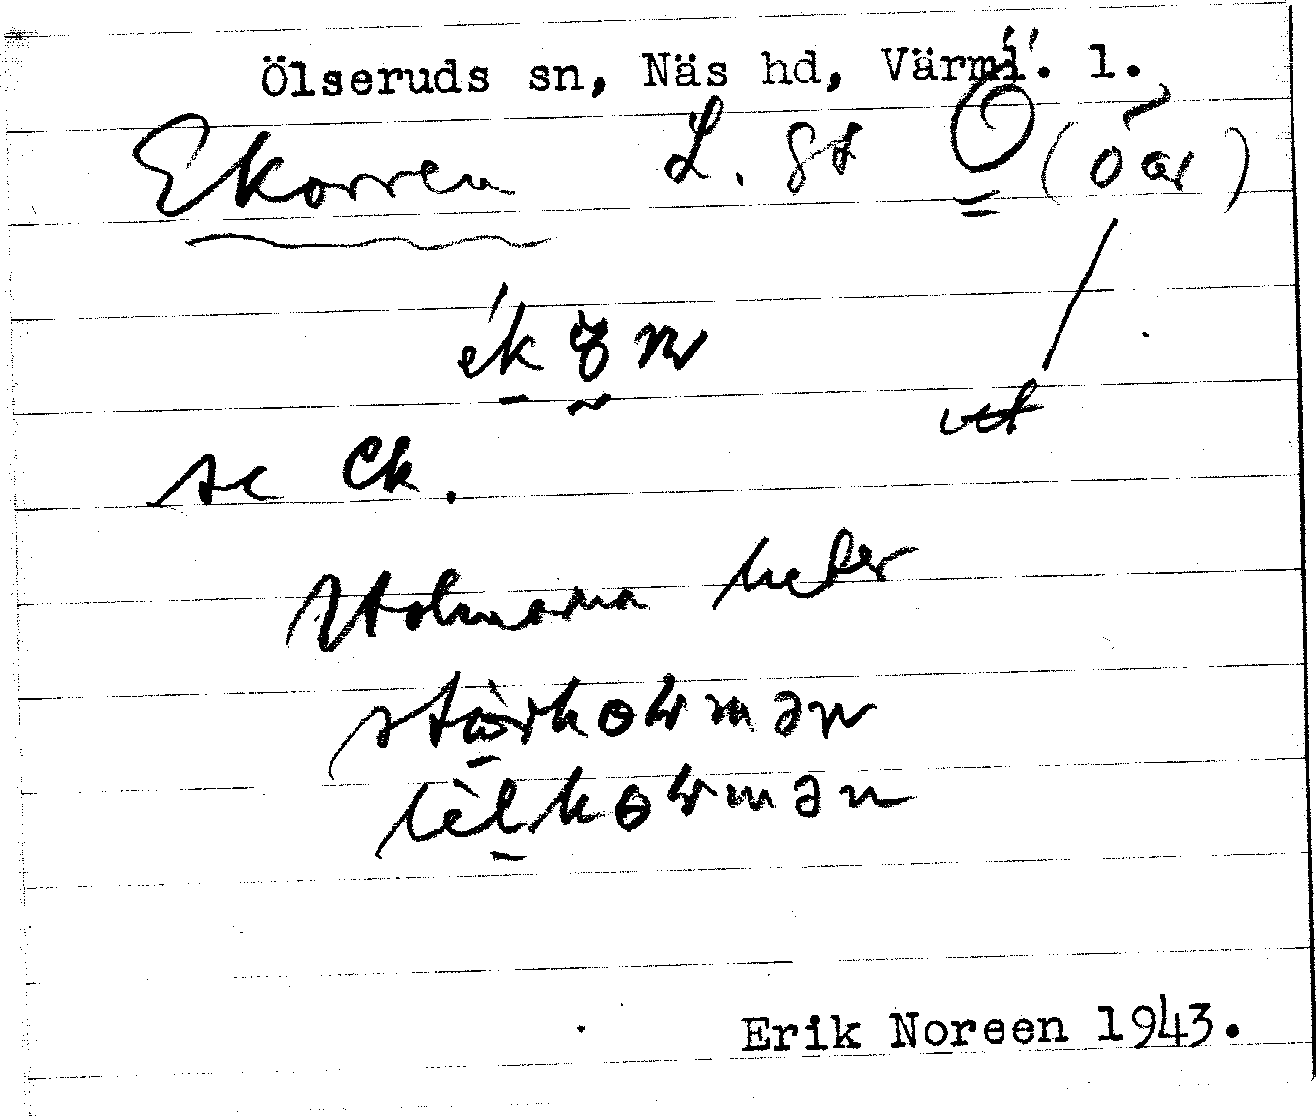 Ölseruds sn, Näs hd, Värml. l.
Ekorren L. gd Ö (öar)
ék ən
se Ek.
Holmarna heter
stòrhoɽmən
lèlhoɽmən
Erik Noreen 1943.